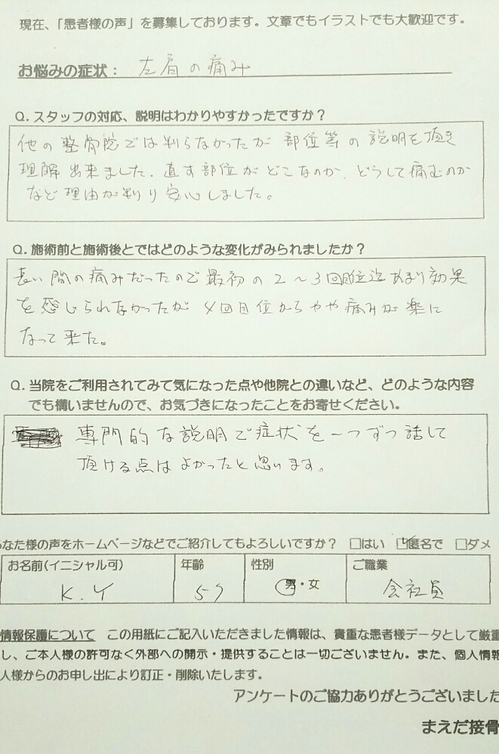 現在、「患者様の声」を募集しております。文章でもイラストでも大歓迎です。
お悩みの症状： 左肩の痛み
Q. スタッフの対応、説明はわかりやすかったですか？
他の整骨院では判らなかったが部位等の説明を頂き
理解出来ました。直す部位がどこなのか、どうして痛むのか
など理由が判り安心しました。
Q. 施術前と施術後とではどのような変化がみられましたか？
長い間の痛みだったので最初の2〜3回目位迄あまり効果
を感じられなかったが4回目位からやや痛みが楽に
なって来た。
Q. 当院をご利用されてみて気になった点や他院との違いなど、どのような内容
でも構いませんので、お気づきになったことをお寄せください。
専門的な説明で症状を一つずつ話して
頂ける点はよかったと思います。
なた様の声をホームページなどでご紹介してもよろしいですか？ □はい ☑匿名で □ダメ
お名前(イニシャル可) 年齢 性別 ご職業
K.Y 57 男・女 会社員
情報保護について この用紙にご記入いただきました情報は、貴重な患者様データとして厳重
し、ご本人様の許可なく外部への開示・提供することは一切ございません。また、個人情報
人様からのお申し出により訂正・削除いたします。
アンケートのご協力ありがとうございました
まえだ接骨